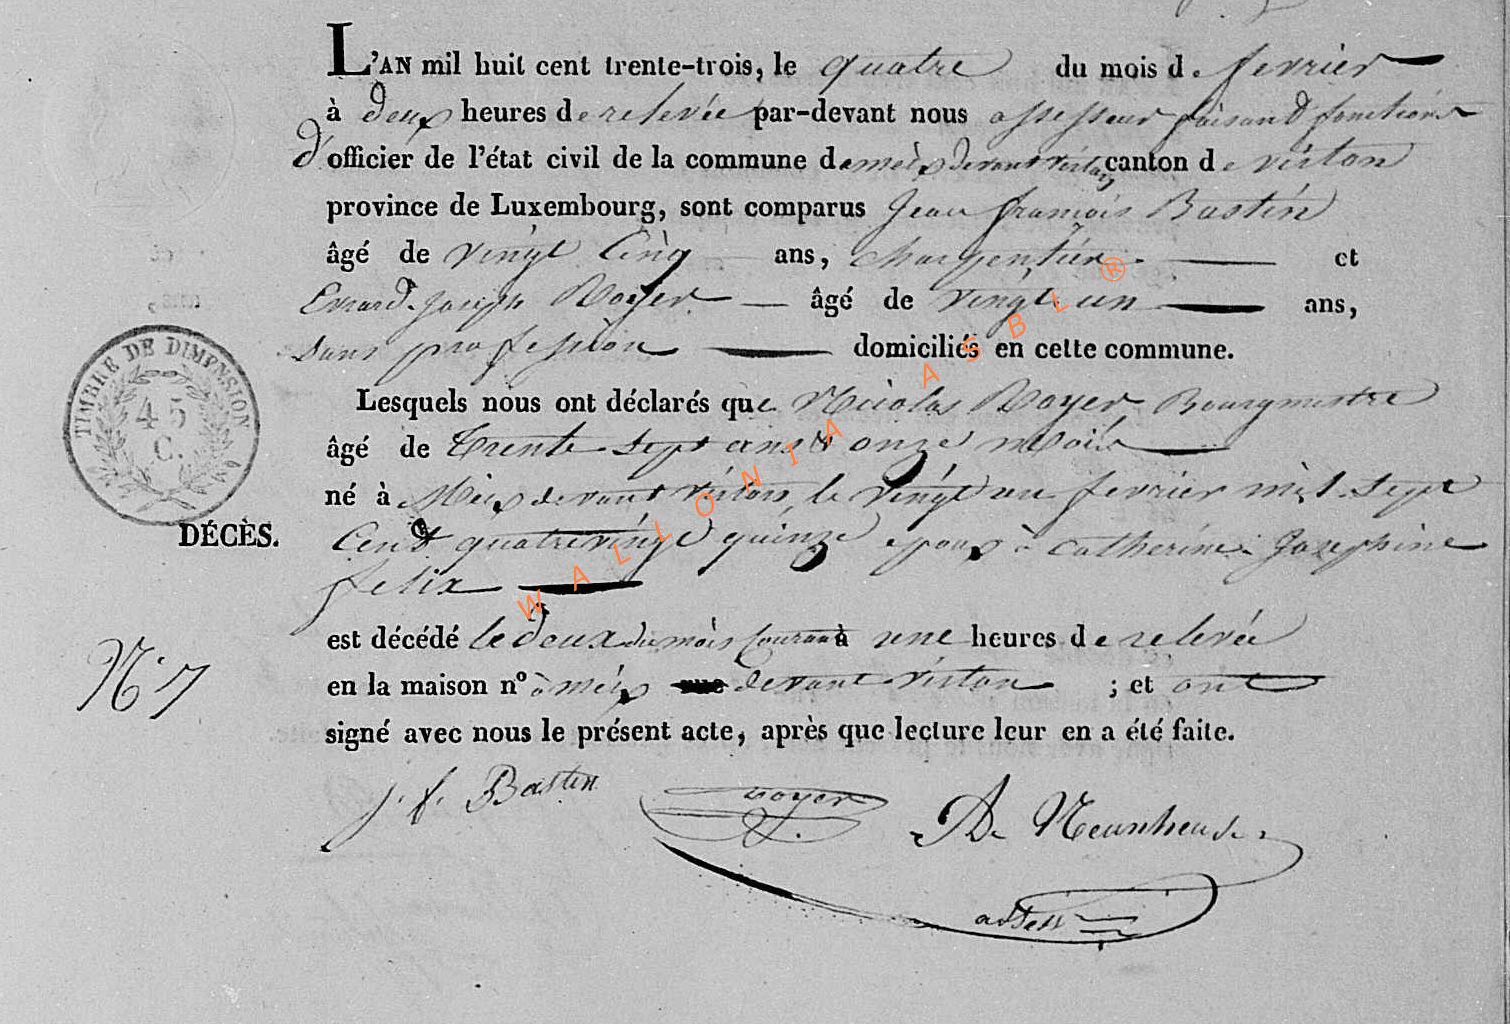 L'AN mil huit cent trente-trois, le quatre du mois de fevrier
à deux heures de relevée par-devant nous assesseur faisant fonctions
d'officier de l'état civil de la commune de meix devant virton canton de virton
province de Luxembourg, sont comparus Jean françois Bastin
âgé de vingt Cinq ans, charpentier et
Evrard Joseph Royer âgé de vingt un ans,
sans profession domiciliés en cette commune.
Lesquels nous ont déclarés que Nicolas Royer Bourgmestre
âgé de trente sept ans & onze mois
né à Meix devant virton, le vingt un fevrier mil sept
Cent quatre vingt quinze epoux à catherine Josephine
felix
est décédé le deux du mois Courant à une heures de relevée
en la maison n° à meix devant virton ; et ont
signé avec nous le présent acte, après que lecture leur en a été faite.
DÉCÈS.
N° 7
TIMBRE DE DIMENSION
45
C.
j. f. Bastin
royer
A. Neunheuser
assess
WALLONIA ASBL ®